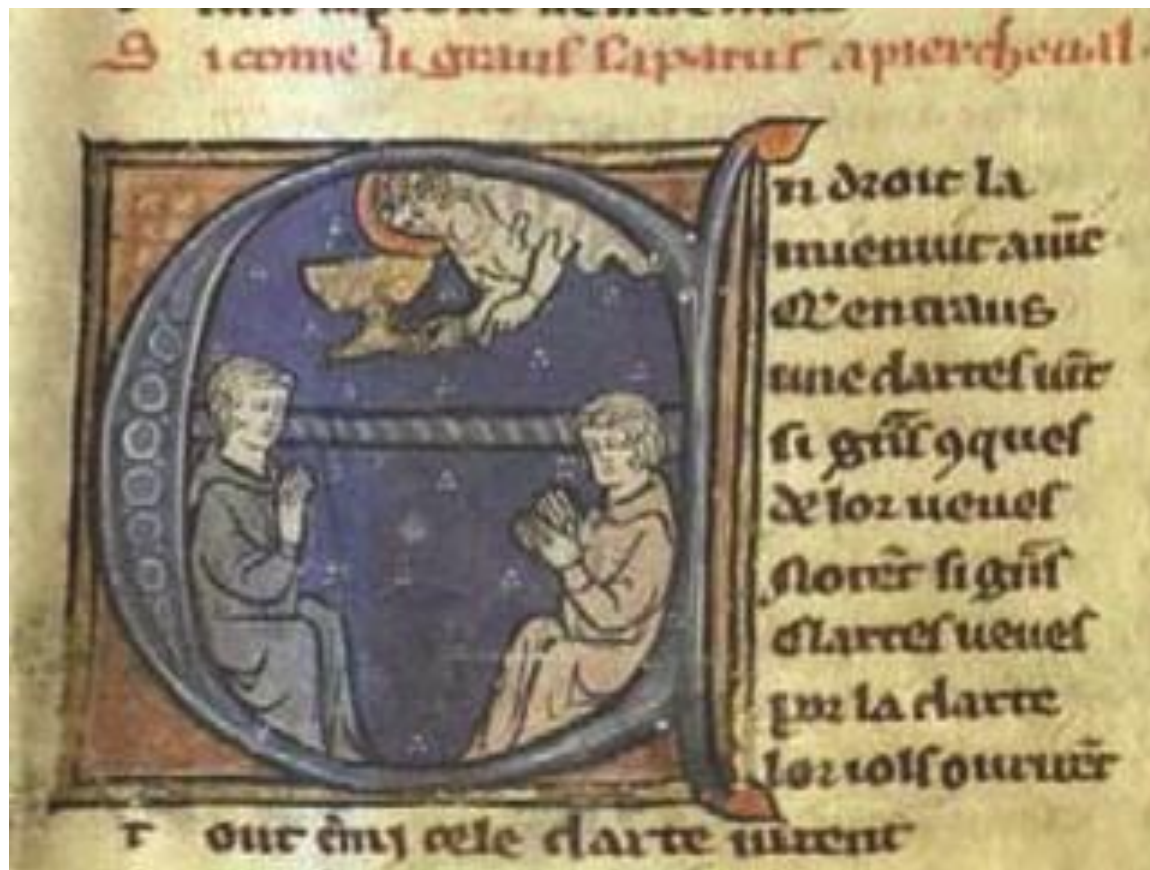 S i come li graus saparut a piercheual.
En droit la
mienuit auīt
Q'entraus
une clartes uīt
si grās ꝯques
de lor ueues
Norēt si grās
Clartes ueues
por la clarte
lor iols ouurēt
T out ēmj cele clarte uirent